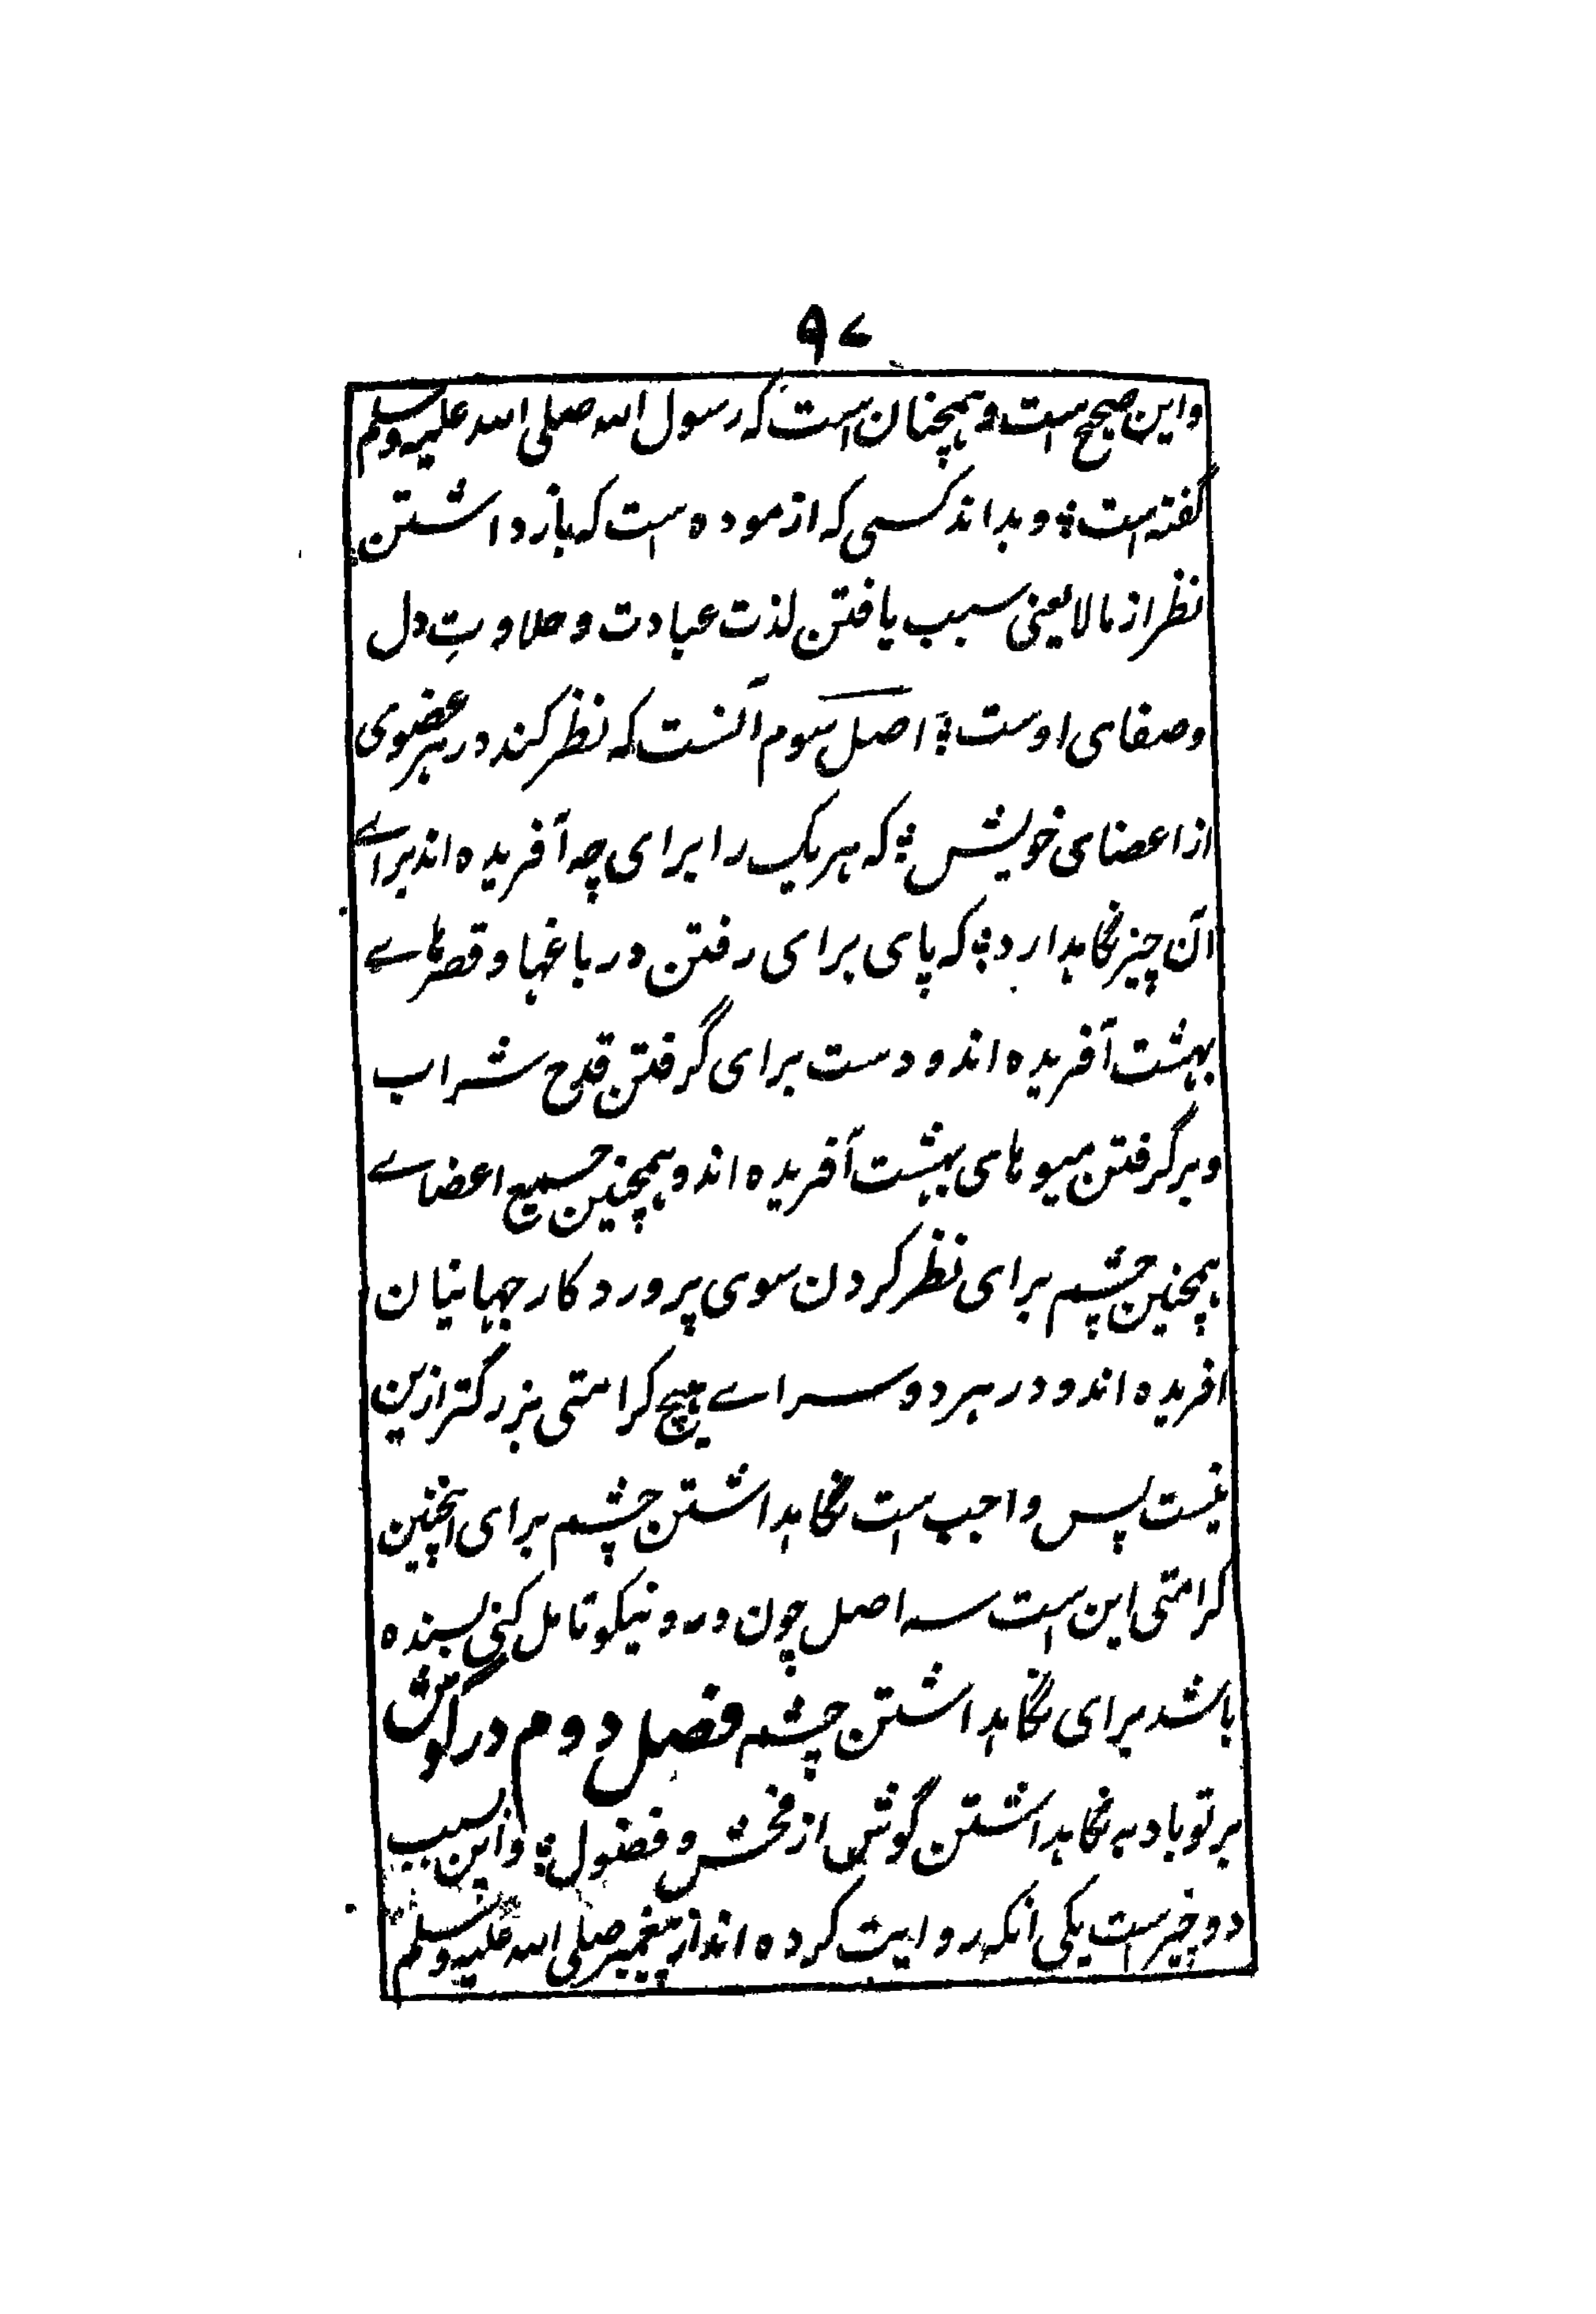 ۹۷
واین صحیح است وهمچنان است که رسول الله صلی الله علیه وسلم
گفته است؛ وبداند کسی که ازموده است که بازداشتن
نظر از مالا یعنی سبب یافتن لذت عبادت و حلاوتِ دل
وصفای اوست؛ اصل سوم آنست که نظر کند در هر عضوی
از اعضای خویش؛ که هر یک را برای چه آفریده اند براے
آن چیز نگاهدارد؛ که پای برای رفتن در باغها و قصرهاے
بهشت آفریده اند و دست برای گرفتن قدح شراب
و برگرفتن میوهای بهشت آفریده اند وهمچنین جمیع اعضاے
همچنین چشم برای نظر کردن سوی پروردکار جهانیان
افریده اند و در هر دو سراے هیچ کرامتی بزرگتر ازین
نیست پس واجب است نگاهداشتن چشم برای اینچنین
کرامتی این است سه اصل چون درو نیکو تامل کنی بسنده
باشد برای نگاهداشتن چشم فصل دوم در گوش
بر تو باد به نگاهداشتن گوش از فحش و فضول؛ واین بسبب
دو چیزست یکی انکه روایت کرده اند از پیغمبر صلی الله علیه وسلم